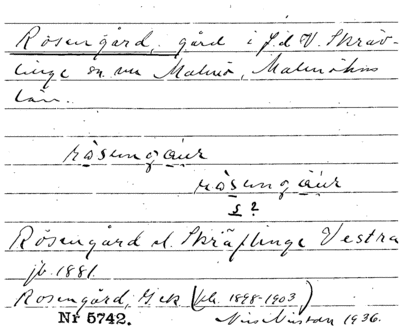 Rosengård, gård i f.d V. Skräv-
linge sn nu Malmö, Malmöhus
län.
råsengaur
råsengáur
s ?
Rosengård el. Skräflinge Vestra
jb. 1881
Rosengård, Gek (bl. 1898-1903)
Nr 5742.
1936.